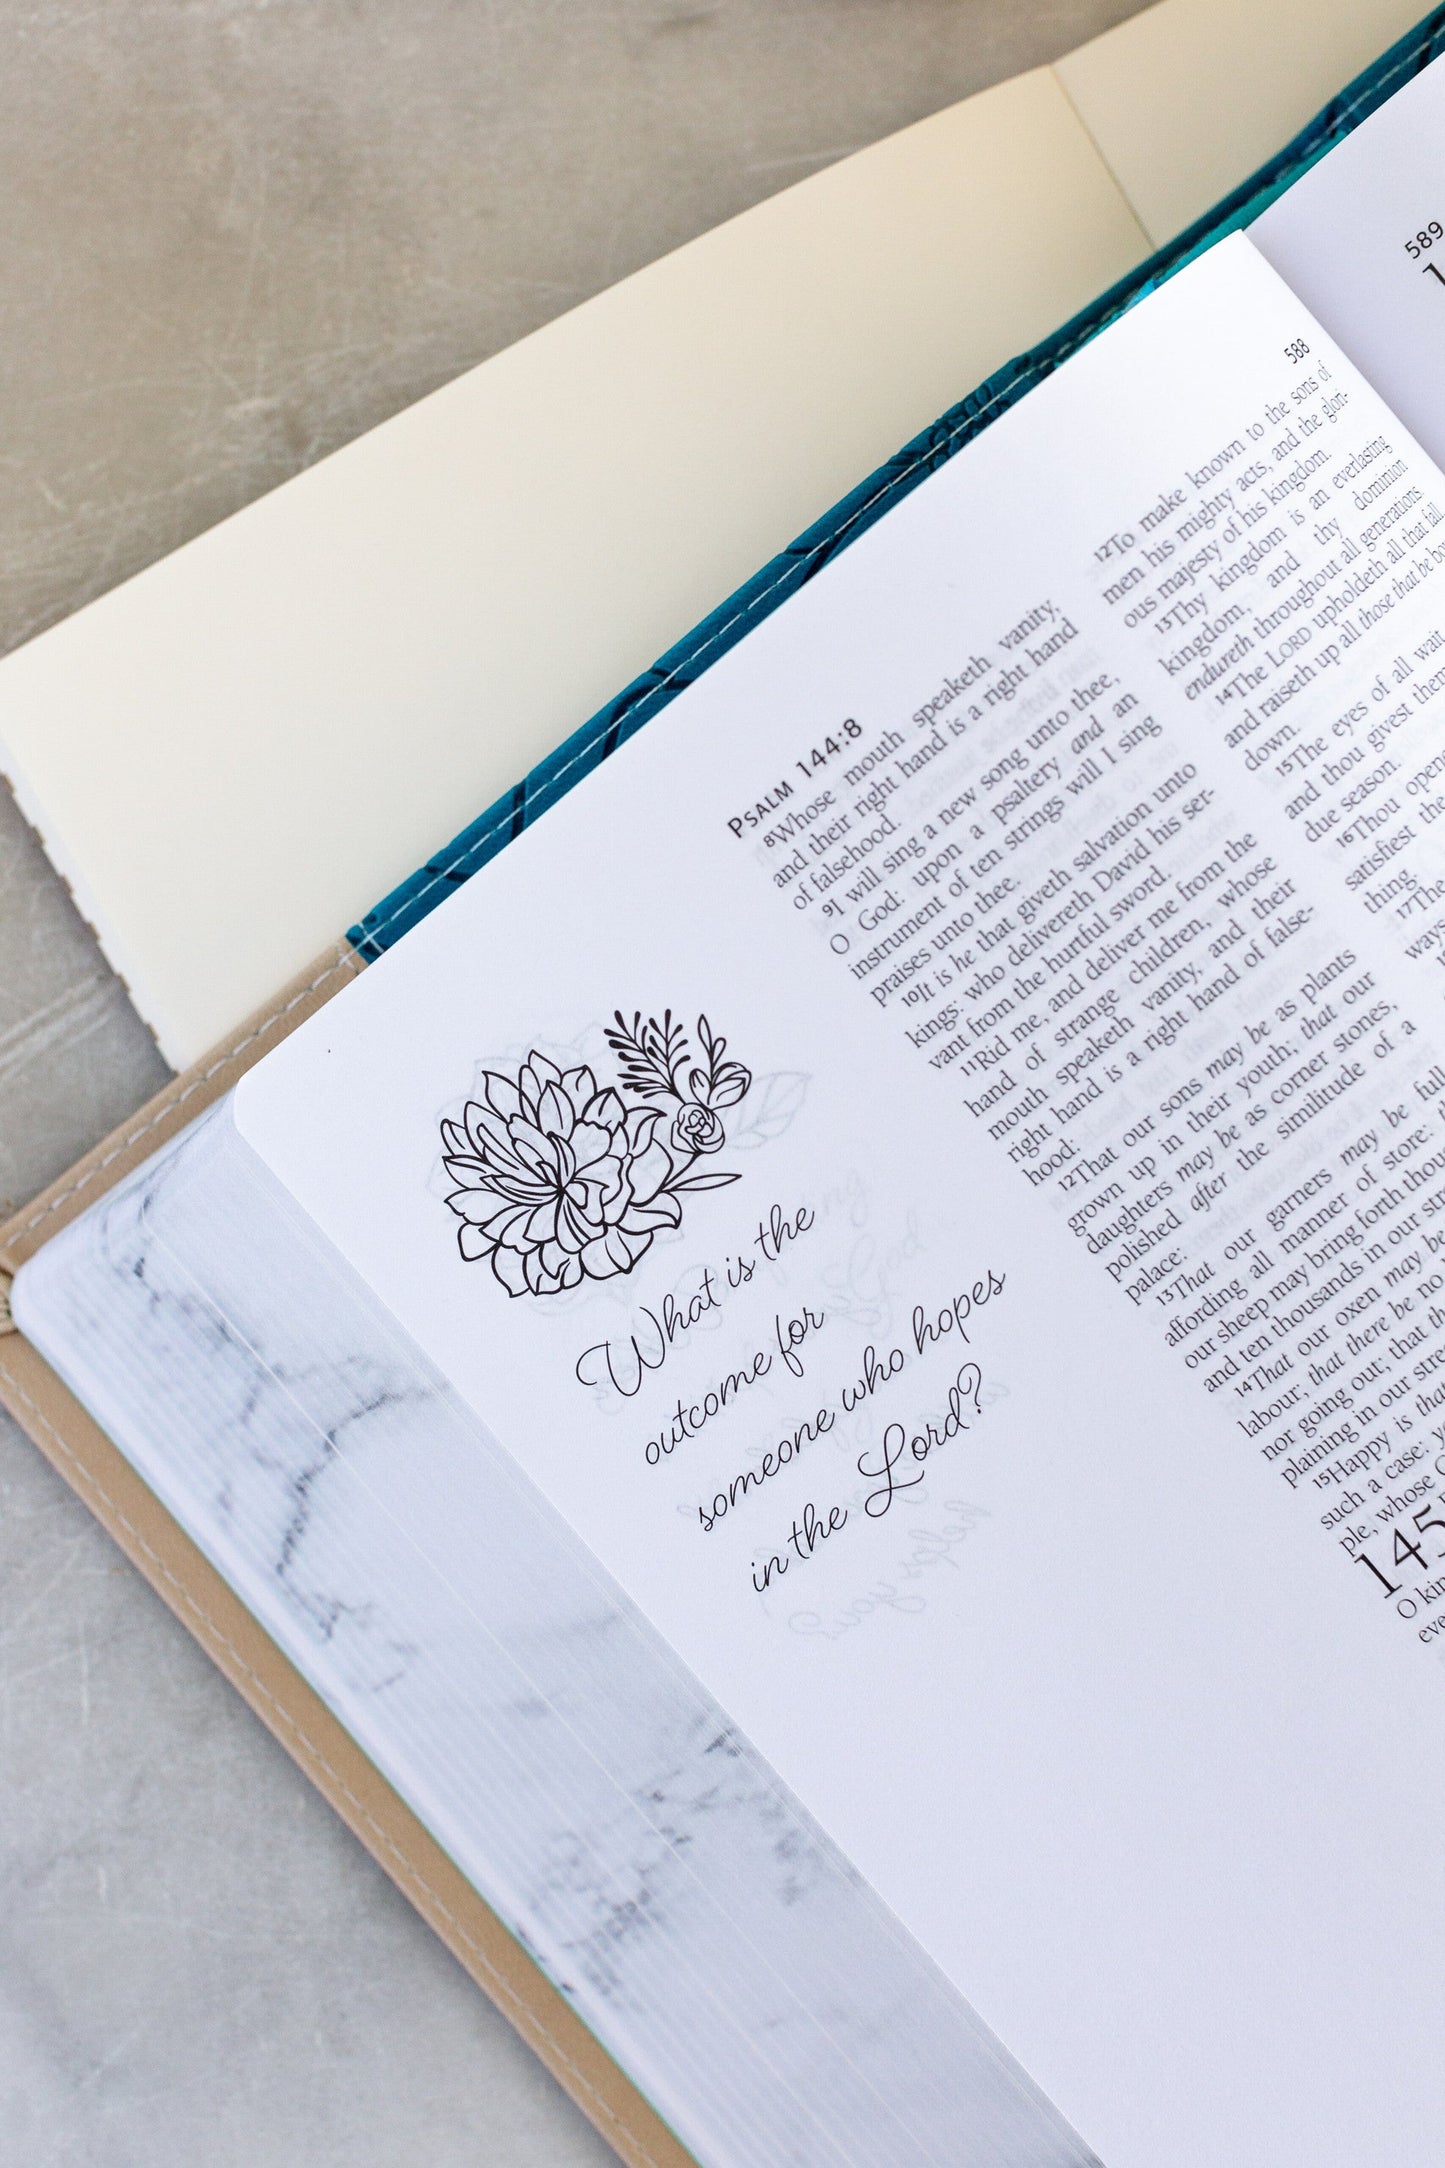 588
PSALM 144:8
8Whose mouth speaketh vanity,
and their right hand is a right hand
of falsehood.
9I will sing a new song unto thee,
O God: upon a psaltery and an
instrument of ten strings will I sing
praises unto thee.
10It is he that giveth salvation unto
kings: who delivereth David his ser-
vant from the hurtful sword.
11Rid me, and deliver me from the
hand of strange children, whose
mouth speaketh vanity, and their
right hand is a right hand of false-
hood:
12That our sons may be as plants
grown up in their youth; that our
daughters may be as corner stones,
polished after the similitude of a
palace:
13That our garners may be full,
affording all manner of store: 
our sheep may bring forth thou
and ten thousands in our str
14That our oxen may be
labour; that there be no
nor going out; that th
plaining in our stre
15Happy is tha
such a case: y
ple, whose
145
O kin
eve
12To make known to the sons of
men his mighty acts, and the glori-
ous majesty of his kingdom.
13Thy kingdom is an everlasting
kingdom, and thy dominion
endureth throughout all generations.
14The LORD upholdeth all that fall,
and raiseth up all those that be bo
down.
15The eyes of all wait
and thou givest them
due season.
16Thou open
satisfiest the
thing.
17The
ways
What is the
outcome for
someone who hopes
in the Lord?
589